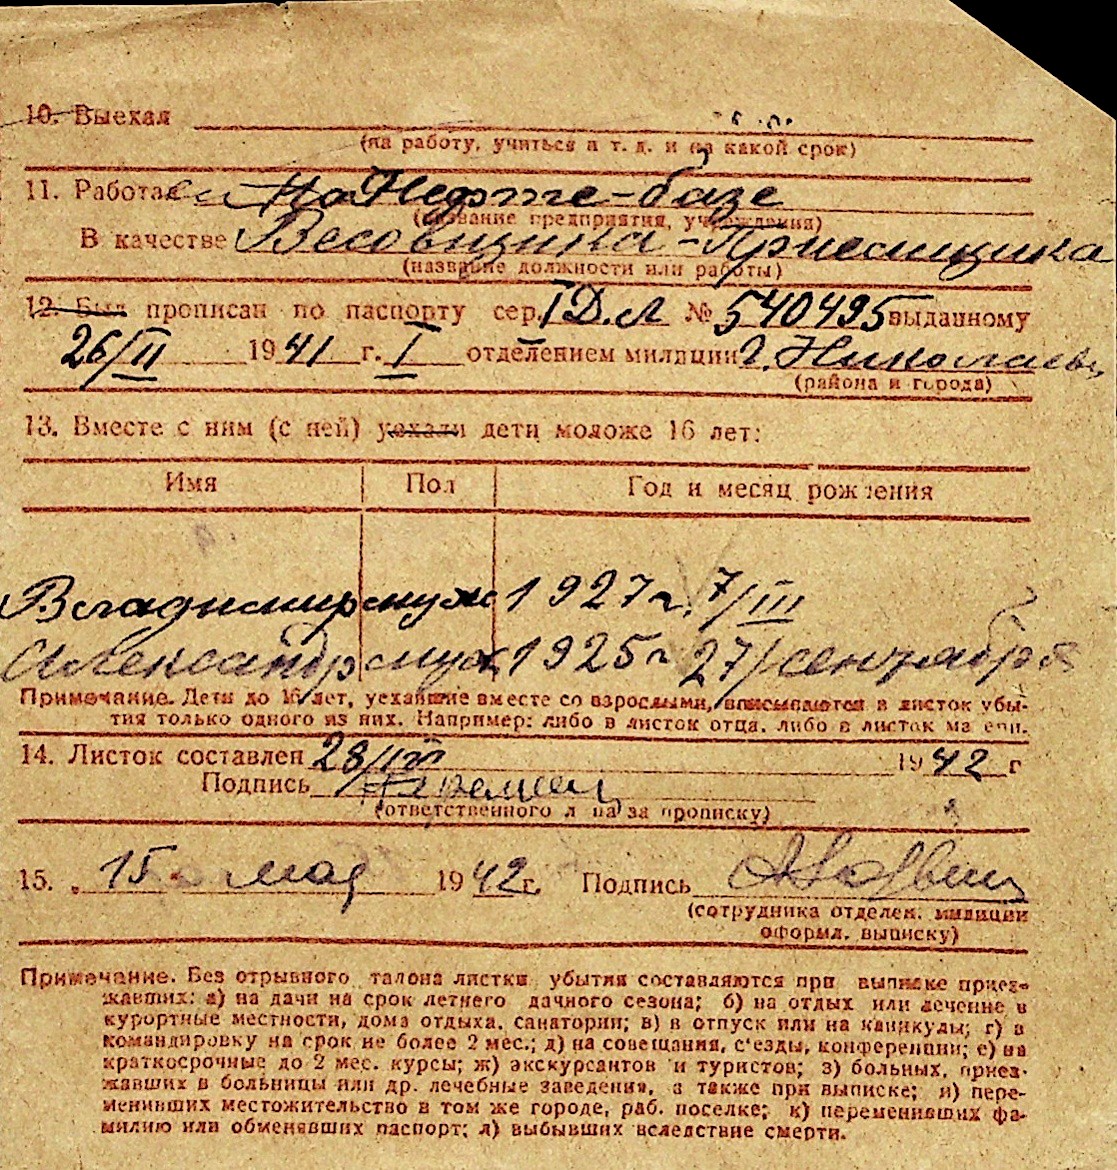 10. Выехал
(на работу, учиться и т. д. и на какой срок)
11. Работа На Нефте-базе
(название предприятия, учреждения)
В качестве Весовщика-Приемщика
(название должности или работы)
12. Был прописан по паспорту сер. I Д.Л № 540495 выданному
26/II 1941 г. I отделением милиции г. Николаев
(района и города)
13. Вместе с ним (с ней) уехали дети моложе 16 лет:
Имя Пол Год и месяц рождения
Владимир муж 1927 г. 7/III
Александр муж 1925 г 27/сентября
Примечание. Дети до 16 лет, уехавшие вместе со взрослыми, вписываются в листок убы-
тия только одного из них. Например: либо в листок отца, либо в листок матери.
14. Листок составлен 28/III 1942 г
Подпись
(ответственного лица за прописку)
15. „ 15 мая 1942 г. Подпись
(сотрудника отделен. милиции
оформл. выписку)
Примечание. Без отрывного талона листки убытия составляются при выписке приез-
жавших: а) на дачи на срок летнего дачного сезона; б) на отдых или лечение в
курортные местности, дома отдыха, санатории; в) в отпуск или на каникулы; г) в
командировку на срок не более 2 мес.; д) на совещания, с'езды, конференции; е) на
краткосрочные до 2 мес. курсы; ж) экскурсантов и туристов; з) больных, приез-
жавших в больницы или др. лечебные заведения, а также при выписке; и) пере-
менивших местожительство в том же городе, раб. поселке; к) переменивших фа-
милию или обменявших паспорт; л) выбывших вследствие смерти.